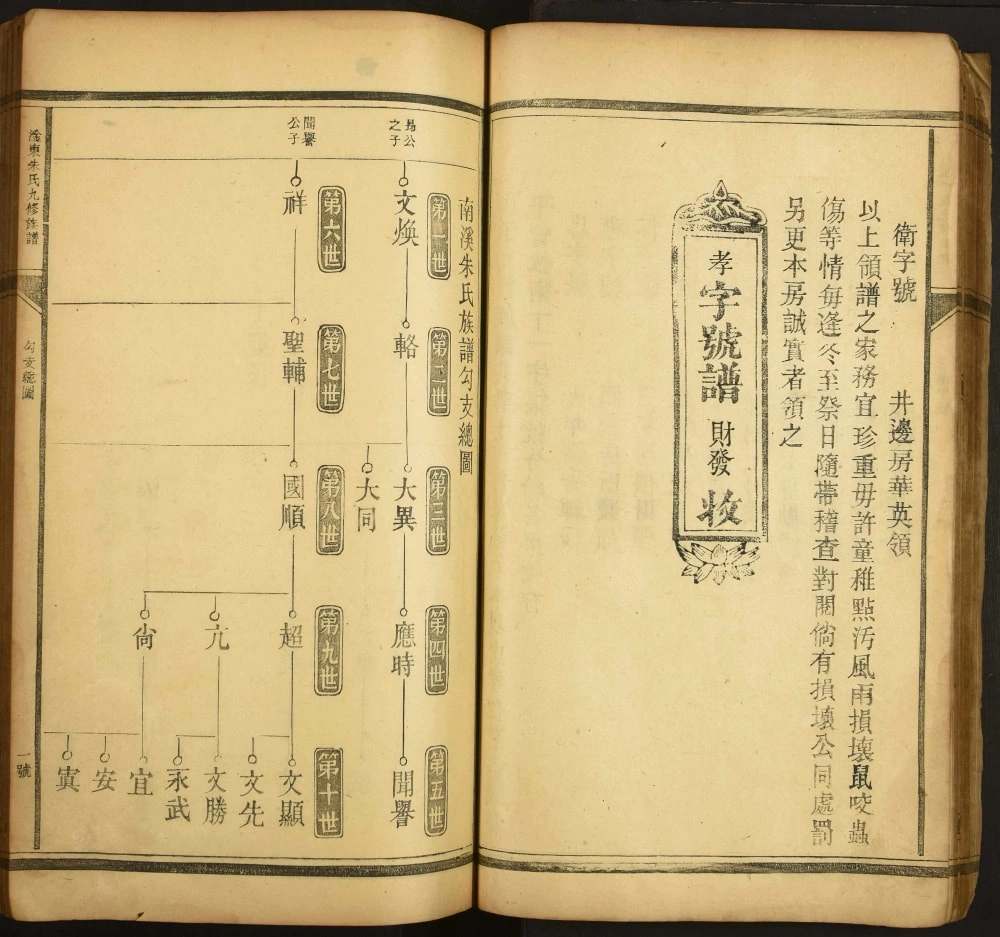 衛字號 井邊房華英領
以上領譜之家務宜珍重毋許童稚點污風雨損壞鼠咬蟲
傷等情每逢冬至祭日隨帶稽查對閱倘有損壞公同處罰
另更本房誠實者領之
孝字號譜 財發 收
南溪朱氏族譜勾支總圖
第一世 第二世 第三世 第四世 第五世
公之子
文煥 輅 大異 應時 聞譽
大同
第六世 第七世 第八世 第九世 第十世
聞譽公子
祥 聖輔 國順 超 文顯
文先
亢 文勝
永武
尙 宜
安
寅
東朱氏九修族譜 勾支總圖 一號